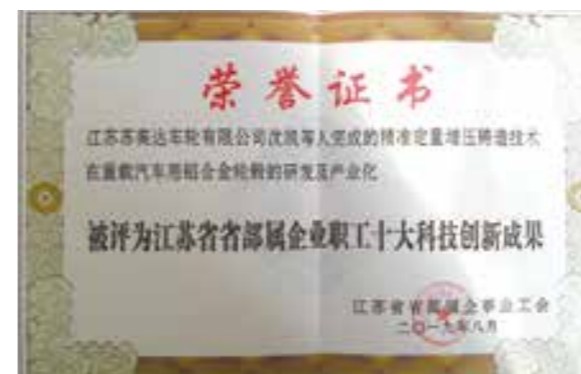 荣誉证书
江苏苏美达车轮有限公司沈凯等人完成的精准定量增压铸造技术
在重载汽车用铝合金轮毂的研发及产业化
被评为江苏省省部属企业职工十大科技创新成果
江苏省省部属企事业工会
二〇一九年八月